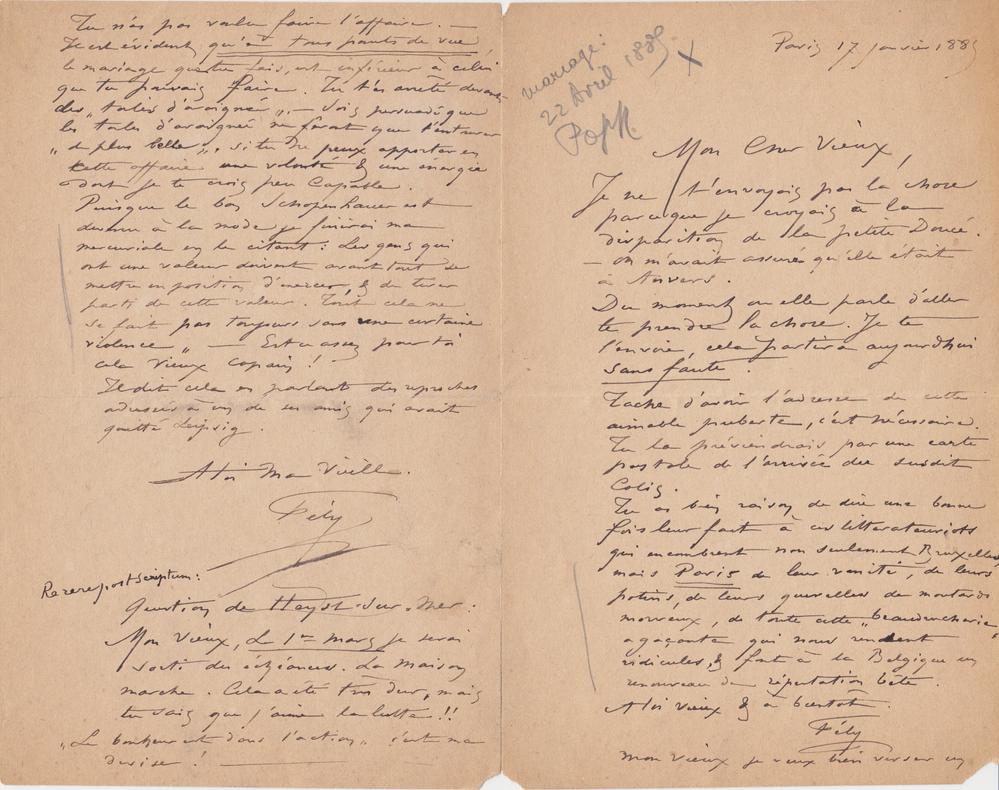 Paris 17 Janvier 1885
mariage:
22 Avril 1885
X
Mon Cher Vieux,
Je ne t'envoyais pas la chose
parceque je croyais à la
disparition de la petite Doucé.
— on m'avait assuré qu'elle était
à Anvers.
Du moment ou elle parle d'aller
te prendre la chose. Je te
l'envoie, cela partira aujourdhui
sans faute.
Tache d'avoir l'adresse de cette
aimable puberte, c'est nécessaire.
Tu la préviendrais par une carte
postale de l'arrivée du susdit
Colis.
Tu as bien raison de dire une bonne
fois leur fait à ces litterateuriots
qui encombrent non seulement Bruxelles,
mais Paris de leur vanité, de leurs
potins, de leurs querelles de moutards
morveux, de toute cette
agaçante qui nous rendent
ridicules, & font à la Belgique un
renouveau de réputation bête.
A toi vieux & à bientôt.
Fély
mon vieux je veux bien verser un
Tu n'as pas voulu faire l'affaire. —
Il est évident qu'à tous points de vue,
le mariage que tu fais, est inférieur à celui
que tu pouvais faire. Tu t'es arrêté devant
des „ toiles d'araignée „ — Sois persuadé que
les toiles d'araignée ne feront que t'entraver
„ de plus belle „, si tu ne peux apporter en
cette affaire une volonté & une énergie
dont je te crois peu Capable.
Puisque le bon Schopenhauer est
devenu à la mode je finirai ma
mercuriale en le citant : Les gens qui
ont une valeur doivent avant tout se
mettre en position d'exercer, & de tirer
parti de cette valeur. Tout cela ne
se fait pas toujours sans une certaine
violence „ — Est ce assez pour toi
cela Vieux copain !
Il dit cela en parlant des reproches
adressés à un de ses amis qui avait
quitté Leipsig.
A toi Ma Vieille.
Fély
Rererepostscriptum:
Question de Heyst-sur-Mer :
Mon Vieux, Le 1er Mars je serai
sorti des échéances. La maison
marche. Cela a été très dur, mais
tu sais que j'aime la lutte !!
„ Le bonheur est dans l'action „ c'est ma
devise !